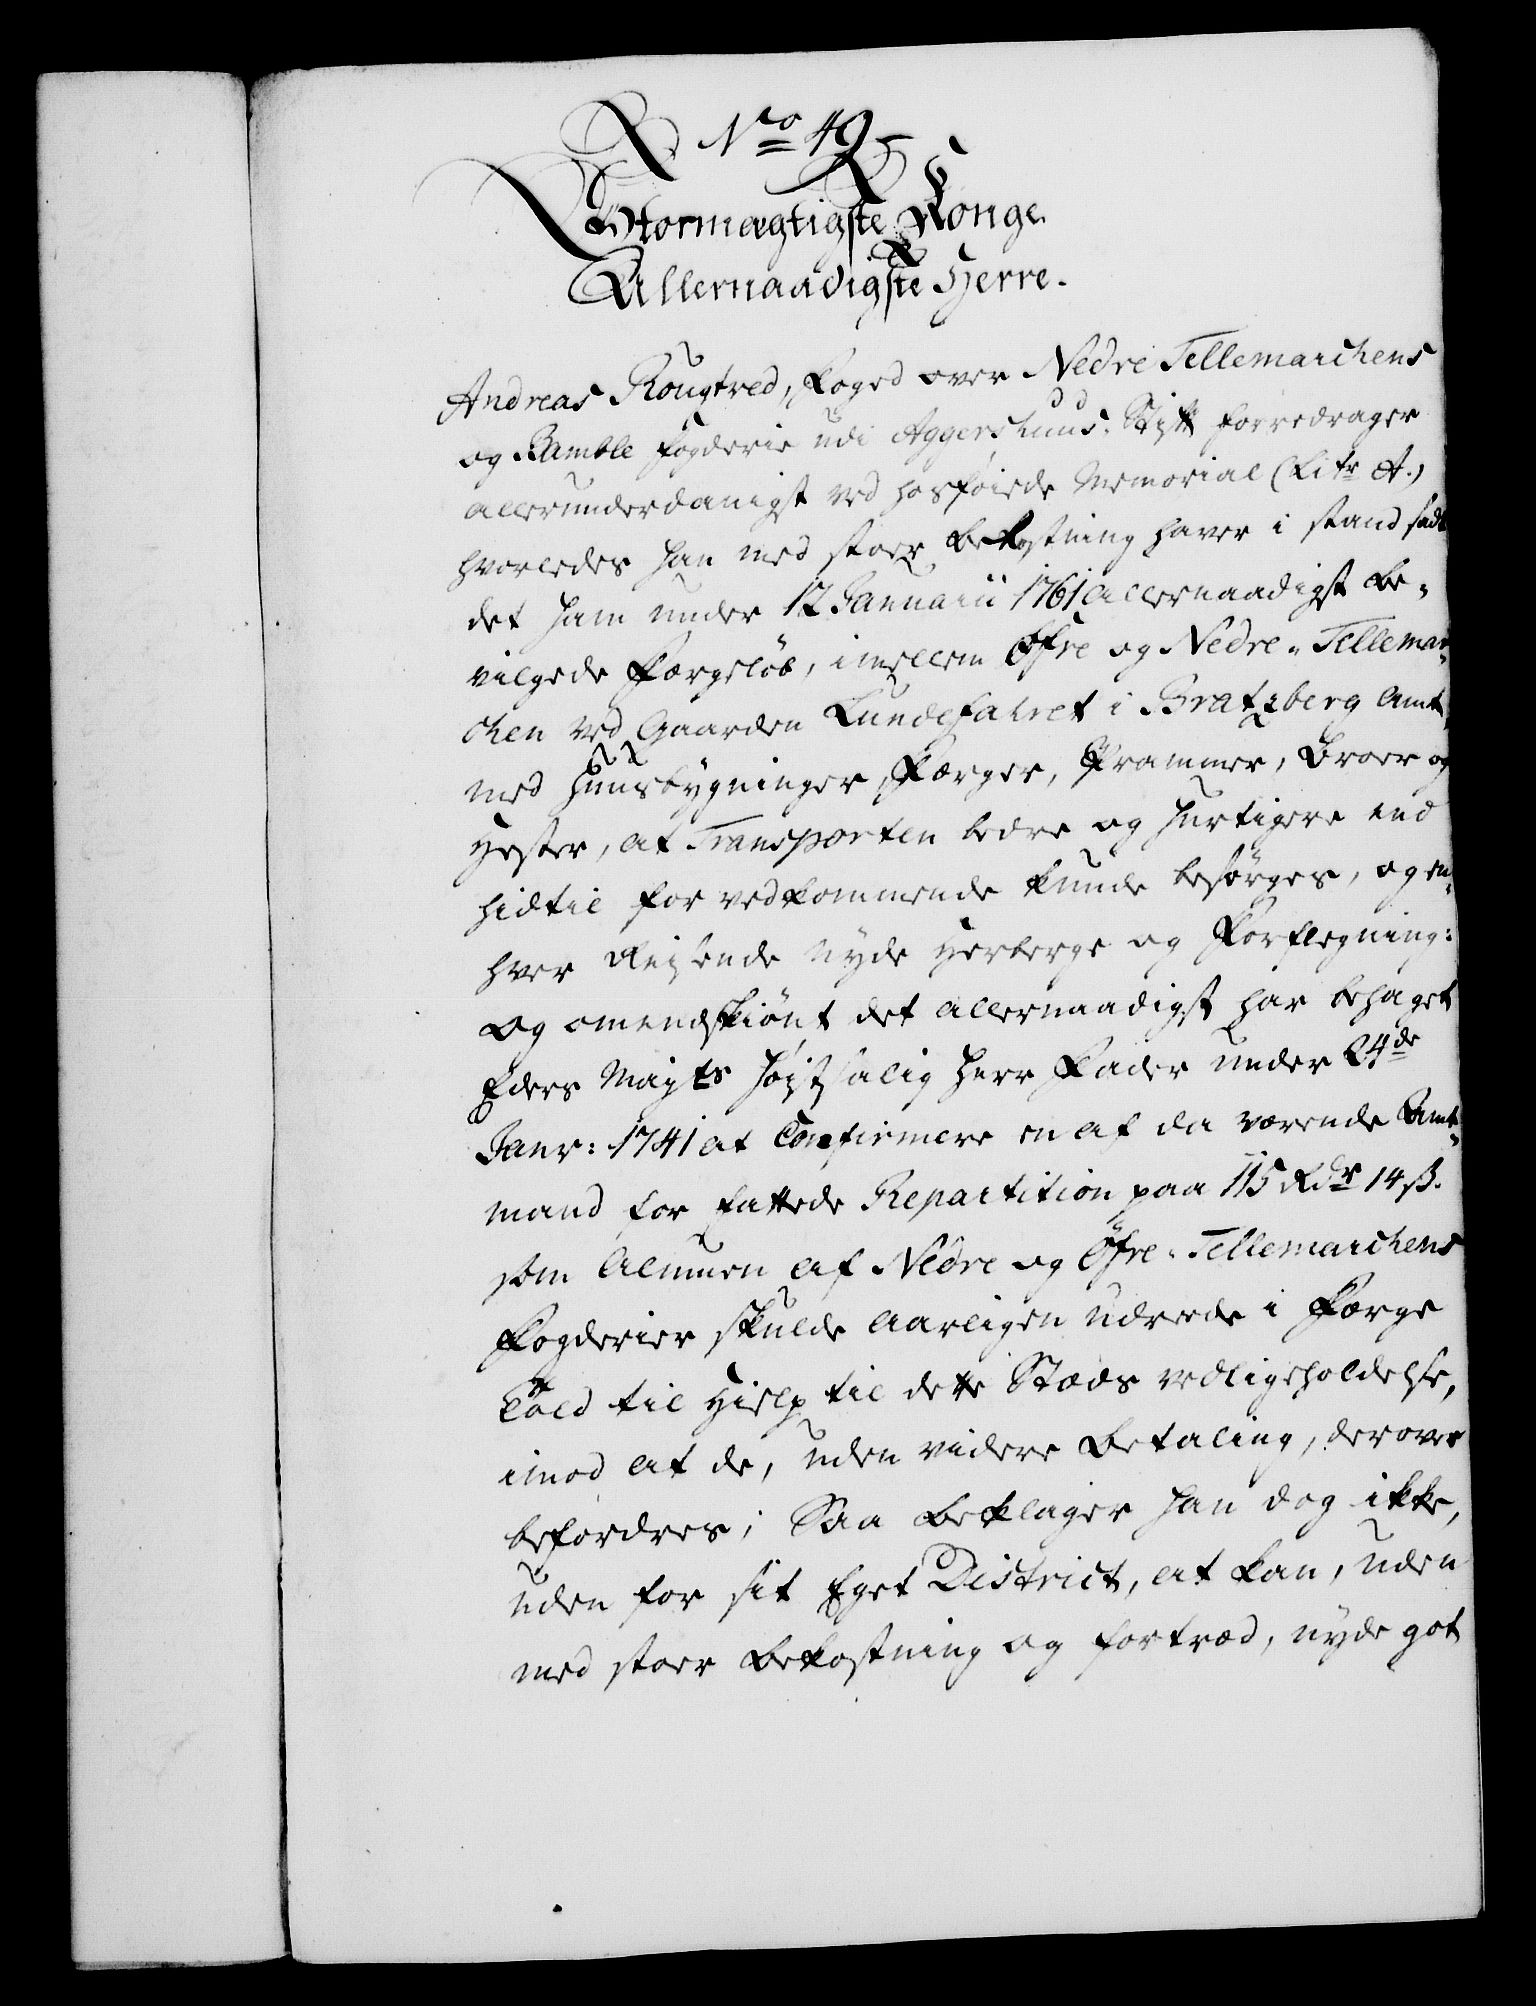 No 49
Stormægtigste Konge.
Allernaadigste Herre.
Andreas Rougtved, Foged over Nedre Tellemarchens
og Bamble Fogderie udi Aggershuus. Stift forredrager
allerunderdanigst ved hosføiede Memorial (Litr A.)
hvorledes han med stoer bekostning haver i stand sadt
det ham under 12 Januarii 1761 allernaadigst be-
vilgede Færgeløb, imellem Øfre og Nedre-Tellemar-
chen ved Gaarden Lundefahret i Bratzberg Amt,
med Huusbygninger, Færger, Prammer, Broer og
Hester, at Transporten bedre og hurtigere end
hidtil for vedkommende kunde besørges, og en-
hver Reisende nyde Herberge og Forflegning:
og omendskiønt det allernaadigst har behaget
Eders Mayts Høistsalig Herr Fader under 24de
Janr: 1741 at Confirmere en af da værende Amt-
mand forfattede Repartition paa 115 Rdr 14 ß.
som Almuen af Nedre og Øfre-Tellemarchens
Fogderier skulde Aarligen udrede i Færge
Told til Hielp til dette Stæds vedligeholdelse,
imod at de, uden videre betaling, derover
befordres; Saa beklager han dog ikke,
uden for sit Eget District, at kan, uden
med stoer bekostning og fortræd, nyde got